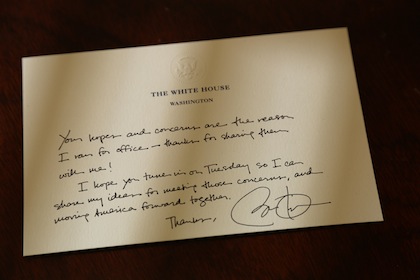 THE WHITE HOUSE
WASHINGTON
Your hopes and concerns are the reason
I ran for office – thanks for sharing them
with me!
I hope you tune in on Tuesday so I can
share my ideas for meeting those concerns, and
moving America forward together.
Thanks,